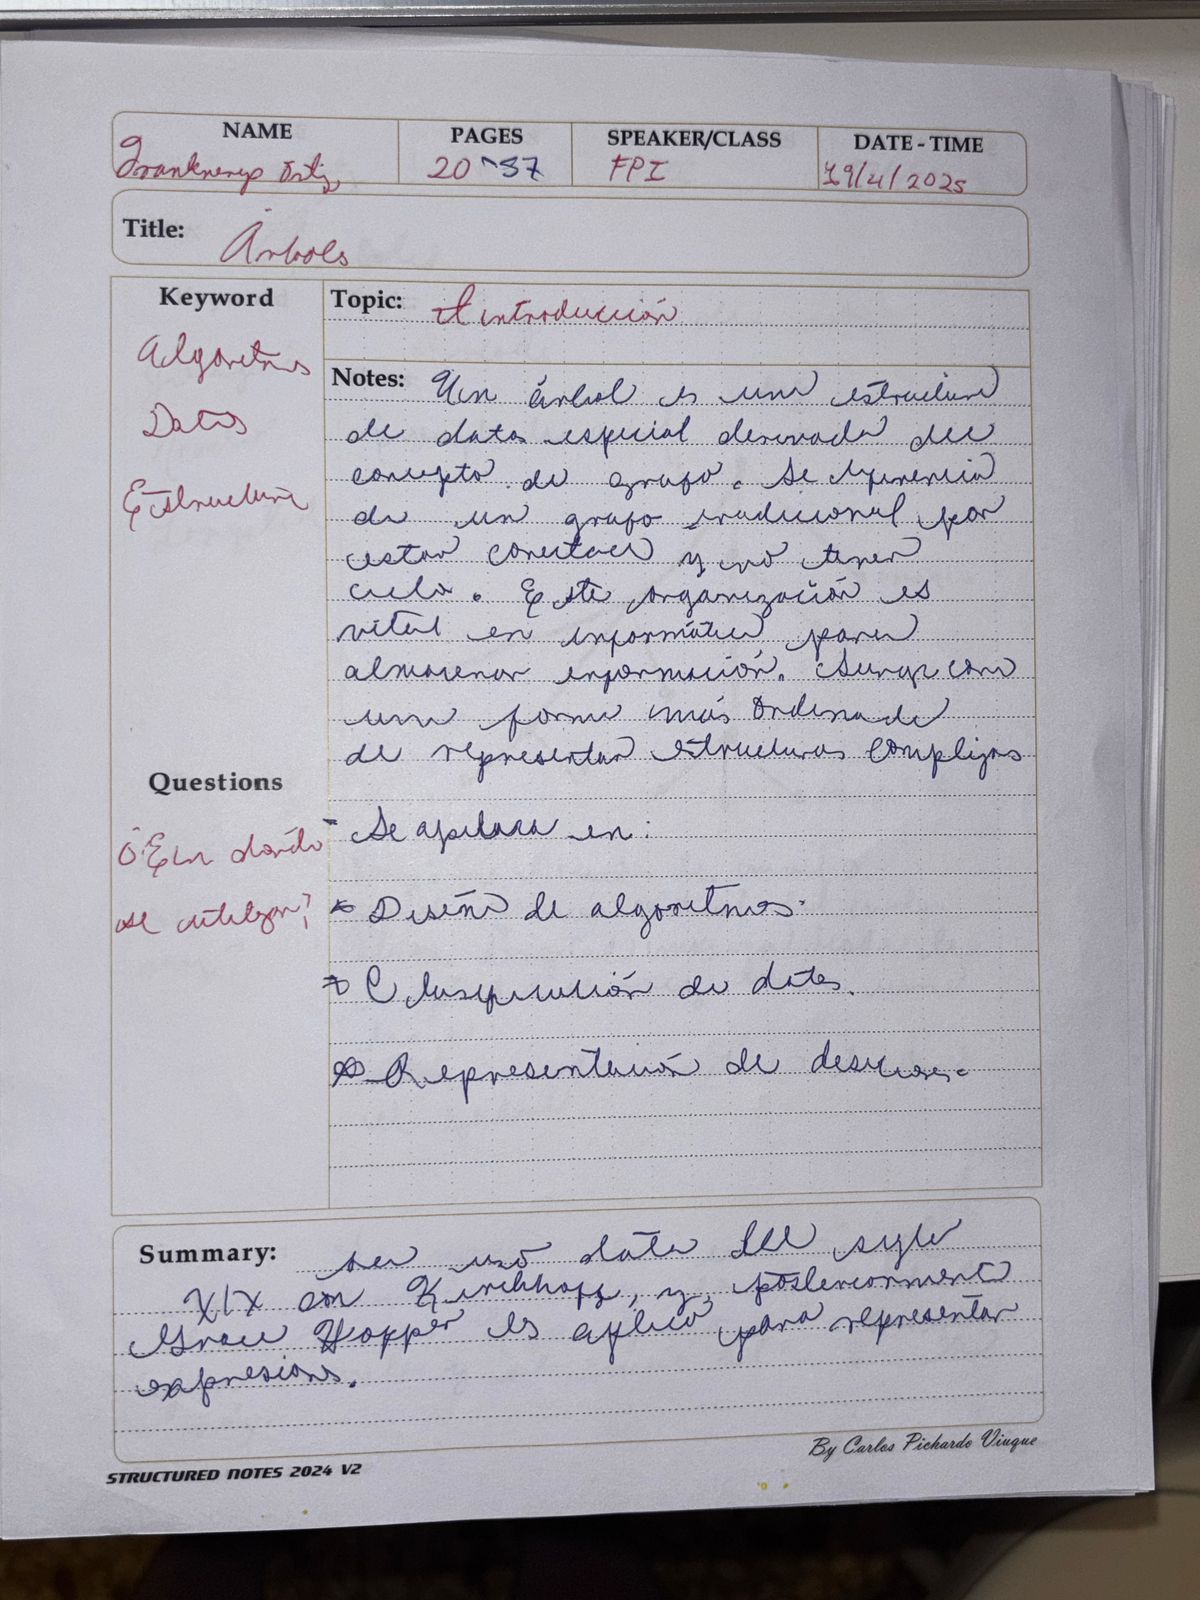 NAME
PAGES
SPEAKER/CLASS
DATE - TIME
20
FPI
19/4/2025
Title: Árboles
Keyword
Algoritmos
Datos
Estructura
Topic: Introducción
Notes: Un árbol es una estructura
de datos especial derivada del
concepto de grafo. Se diferencia
de un grafo tradicional por
estar conectado y no tener
ciclo. Este organización es
vital en informática para
almacenar información. Surge como
una forma más ordenada
de representar estructuras complejas
Questions
¿En dónde
se utilizan?
- Se aplican en:
* Diseño de algoritmos.
* Clasificación de datos.
* Representación de
Summary: uso data del siglo
XIX con Kirchhoff, y, posteriorment
Grace Hopper les aplicó para representar
expresions.
STRUCTURED NOTES 2024 V2
By Carlos Pichardo Viuque